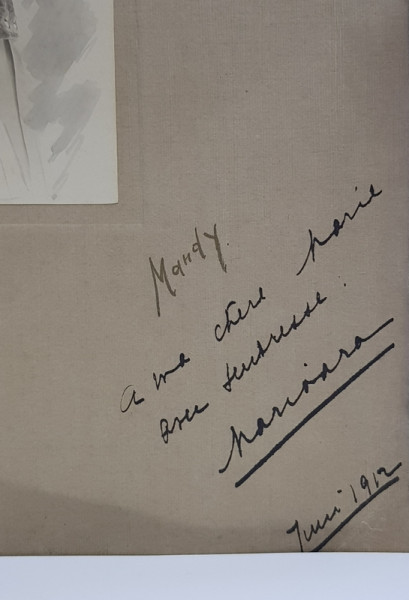 Mandy
a ma chere Marie
avec tendresse.
Marioara
Juni 1912